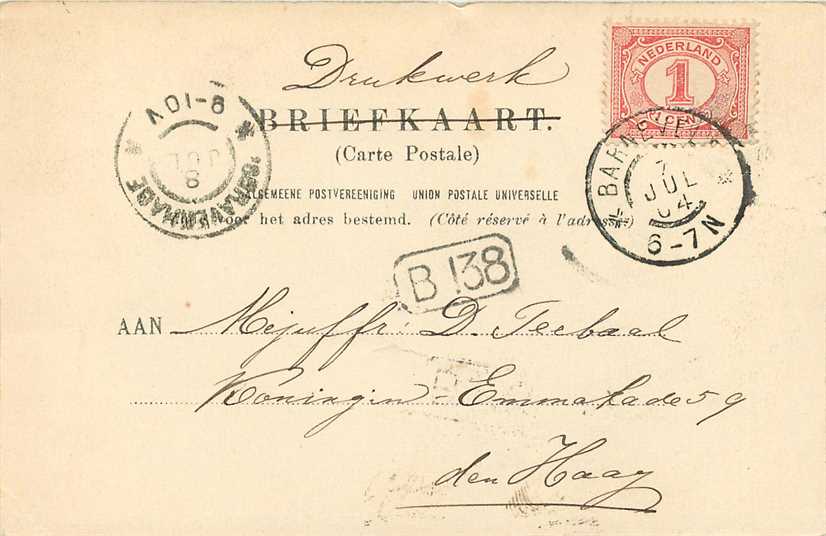 Drukwerk
BRIEFKAART.
(Carte Postale)
ALGEMEENE POSTVEREENIGING UNION POSTALE UNIVERSELLE
voor het adres bestemd. (Côté réservé à l'adresse)
NEDERLAND
1
CENT
BARNEVELD
7
JUL
04
6-7N
'SGRAVENHAGE
8
JUL
8-10V
B 138
AAN Mejuffr: D. Teebaal
Koningin-Emmakade 59
den Haag